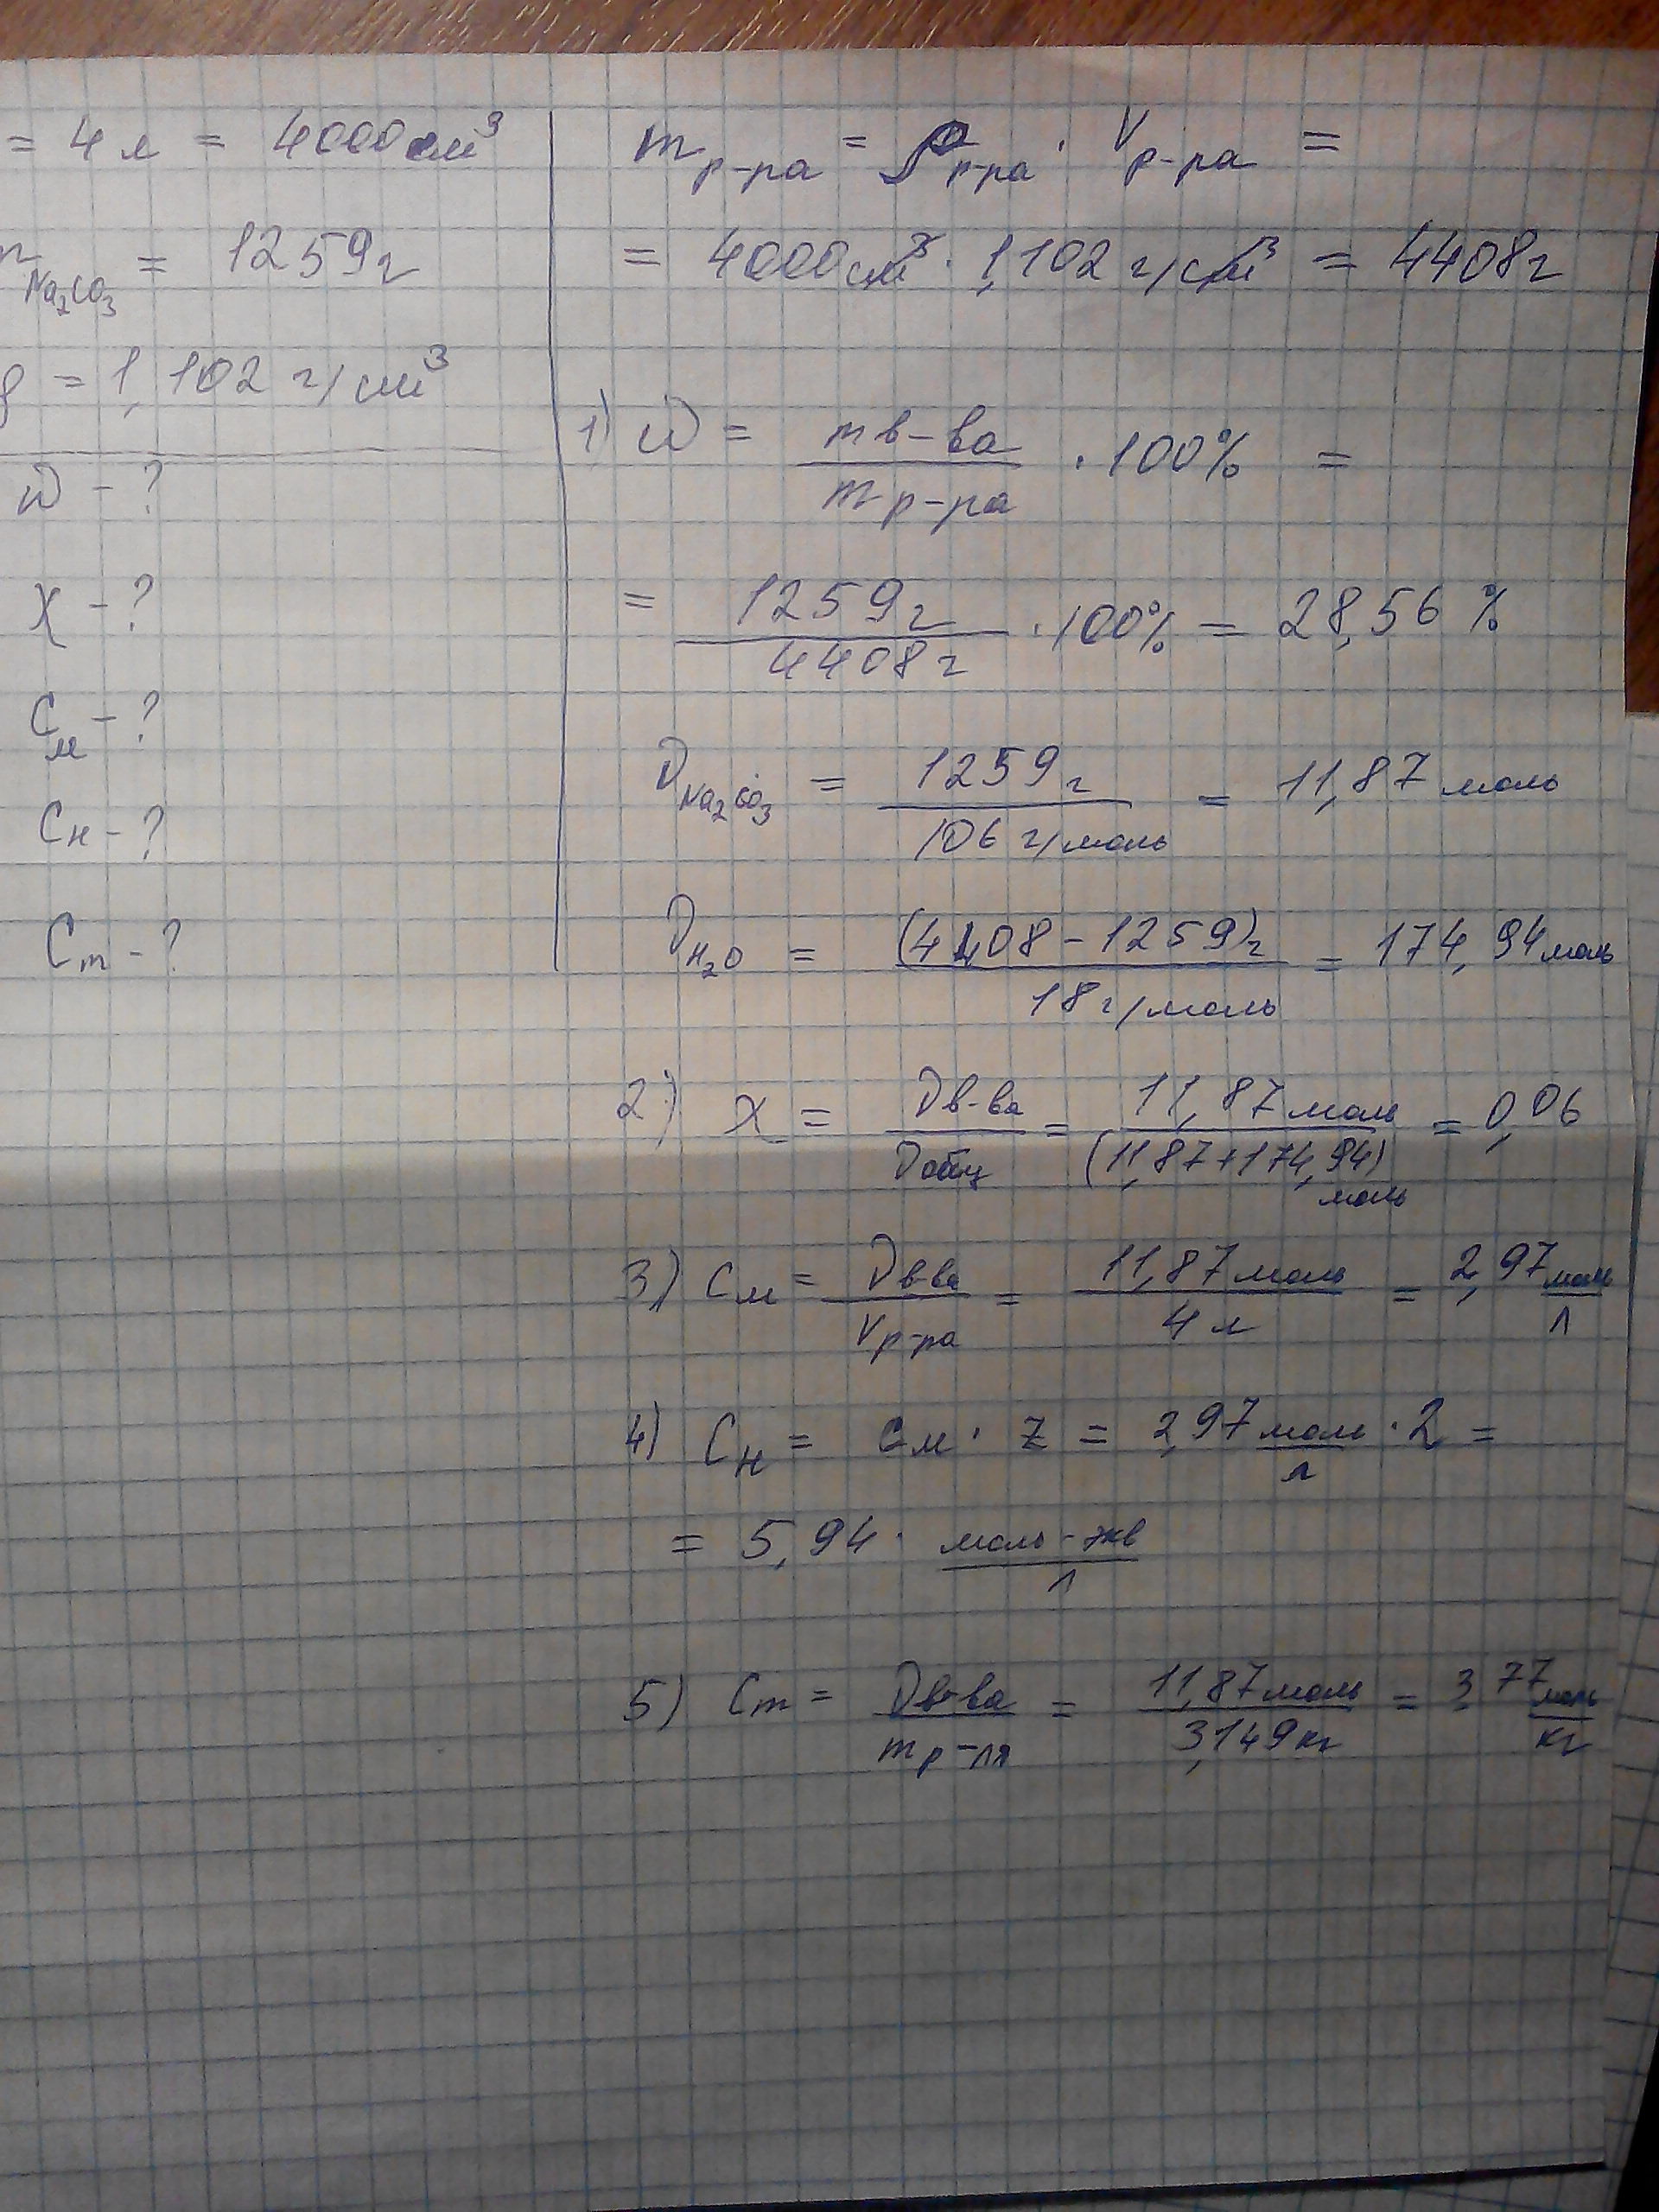 = 4 л = 4000 см³
m Na₂CO₃ = 1259 г
ρ = 1,102 г/см³
ω - ?
χ - ?
Cм - ?
Cн - ?
Cm - ?
m р-ра = ρ р-ра · V р-ра =
= 4000 см³ · 1,102 г/см³ = 4408 г
1) ω = m в-ва / m р-ра · 100% =
= 1259 г / 4408 г · 100% = 28,56 %
ν Na₂CO₃ = 1259 г / 106 г/моль = 11,87 моль
ν H₂O = (4408 - 1259) г / 18 г/моль = 174,94 моль
2) χ = ν в-ва / ν общ = 11,87 моль / (11,87 + 174,94) моль = 0,06
3) Cм = ν в-ва / V р-ра = 11,87 моль / 4 л = 2,97 моль/л
4) Cн = Cм · z = 2,97 моль/л · 2 =
= 5,94 · моль-экв/л
5) Cm = ν в-ва / m р-ля = 11,87 моль / 3,149 кг = 3,77 моль/кг